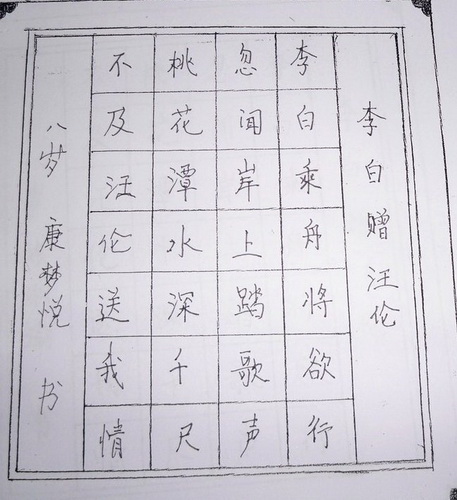 李白赠汪伦
李白乘舟将欲行
忽闻岸上踏歌声
桃花潭水深千尺
不及汪伦送我情
八岁 康梦悦 书